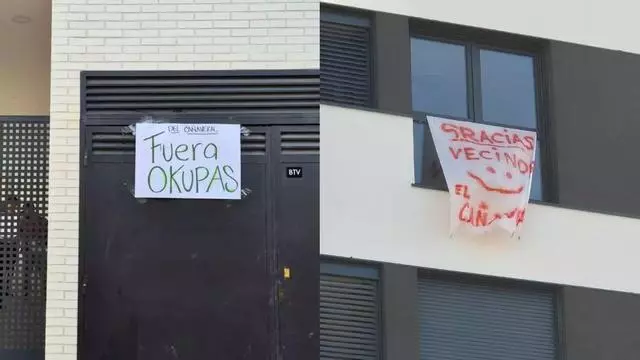 DEL CAÑAVERAL
Fuera
OKUPAS
BTV
GRACIAS
VECINOS
EL